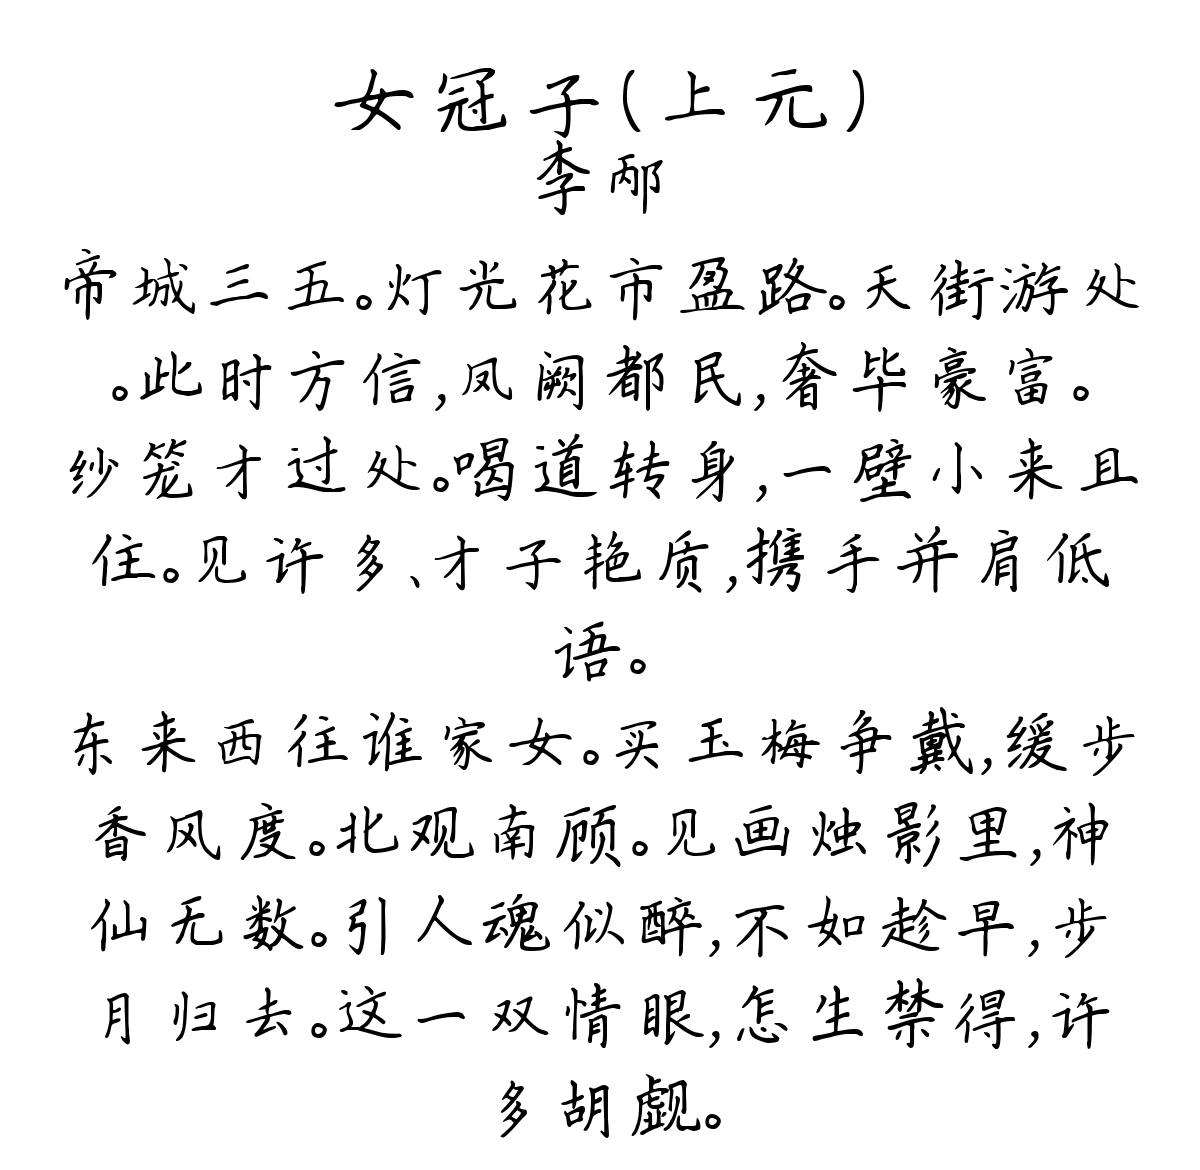 女冠子(上元)
李邴
帝城三五。灯光花市盈路。天街游处
。此时方信,凤阙都民,奢毕豪富。
纱笼才过处。喝道转身,一壁小来且
住。见许多、才子艳质,携手并肩低
语。
东来西往谁家女。买玉梅争戴,缓步
香风度。北观南顾。见画烛影里,神
仙无数。引人魂似醉,不如趁早,步
月归去。这一双情眼,怎生禁得,许
多胡觑。